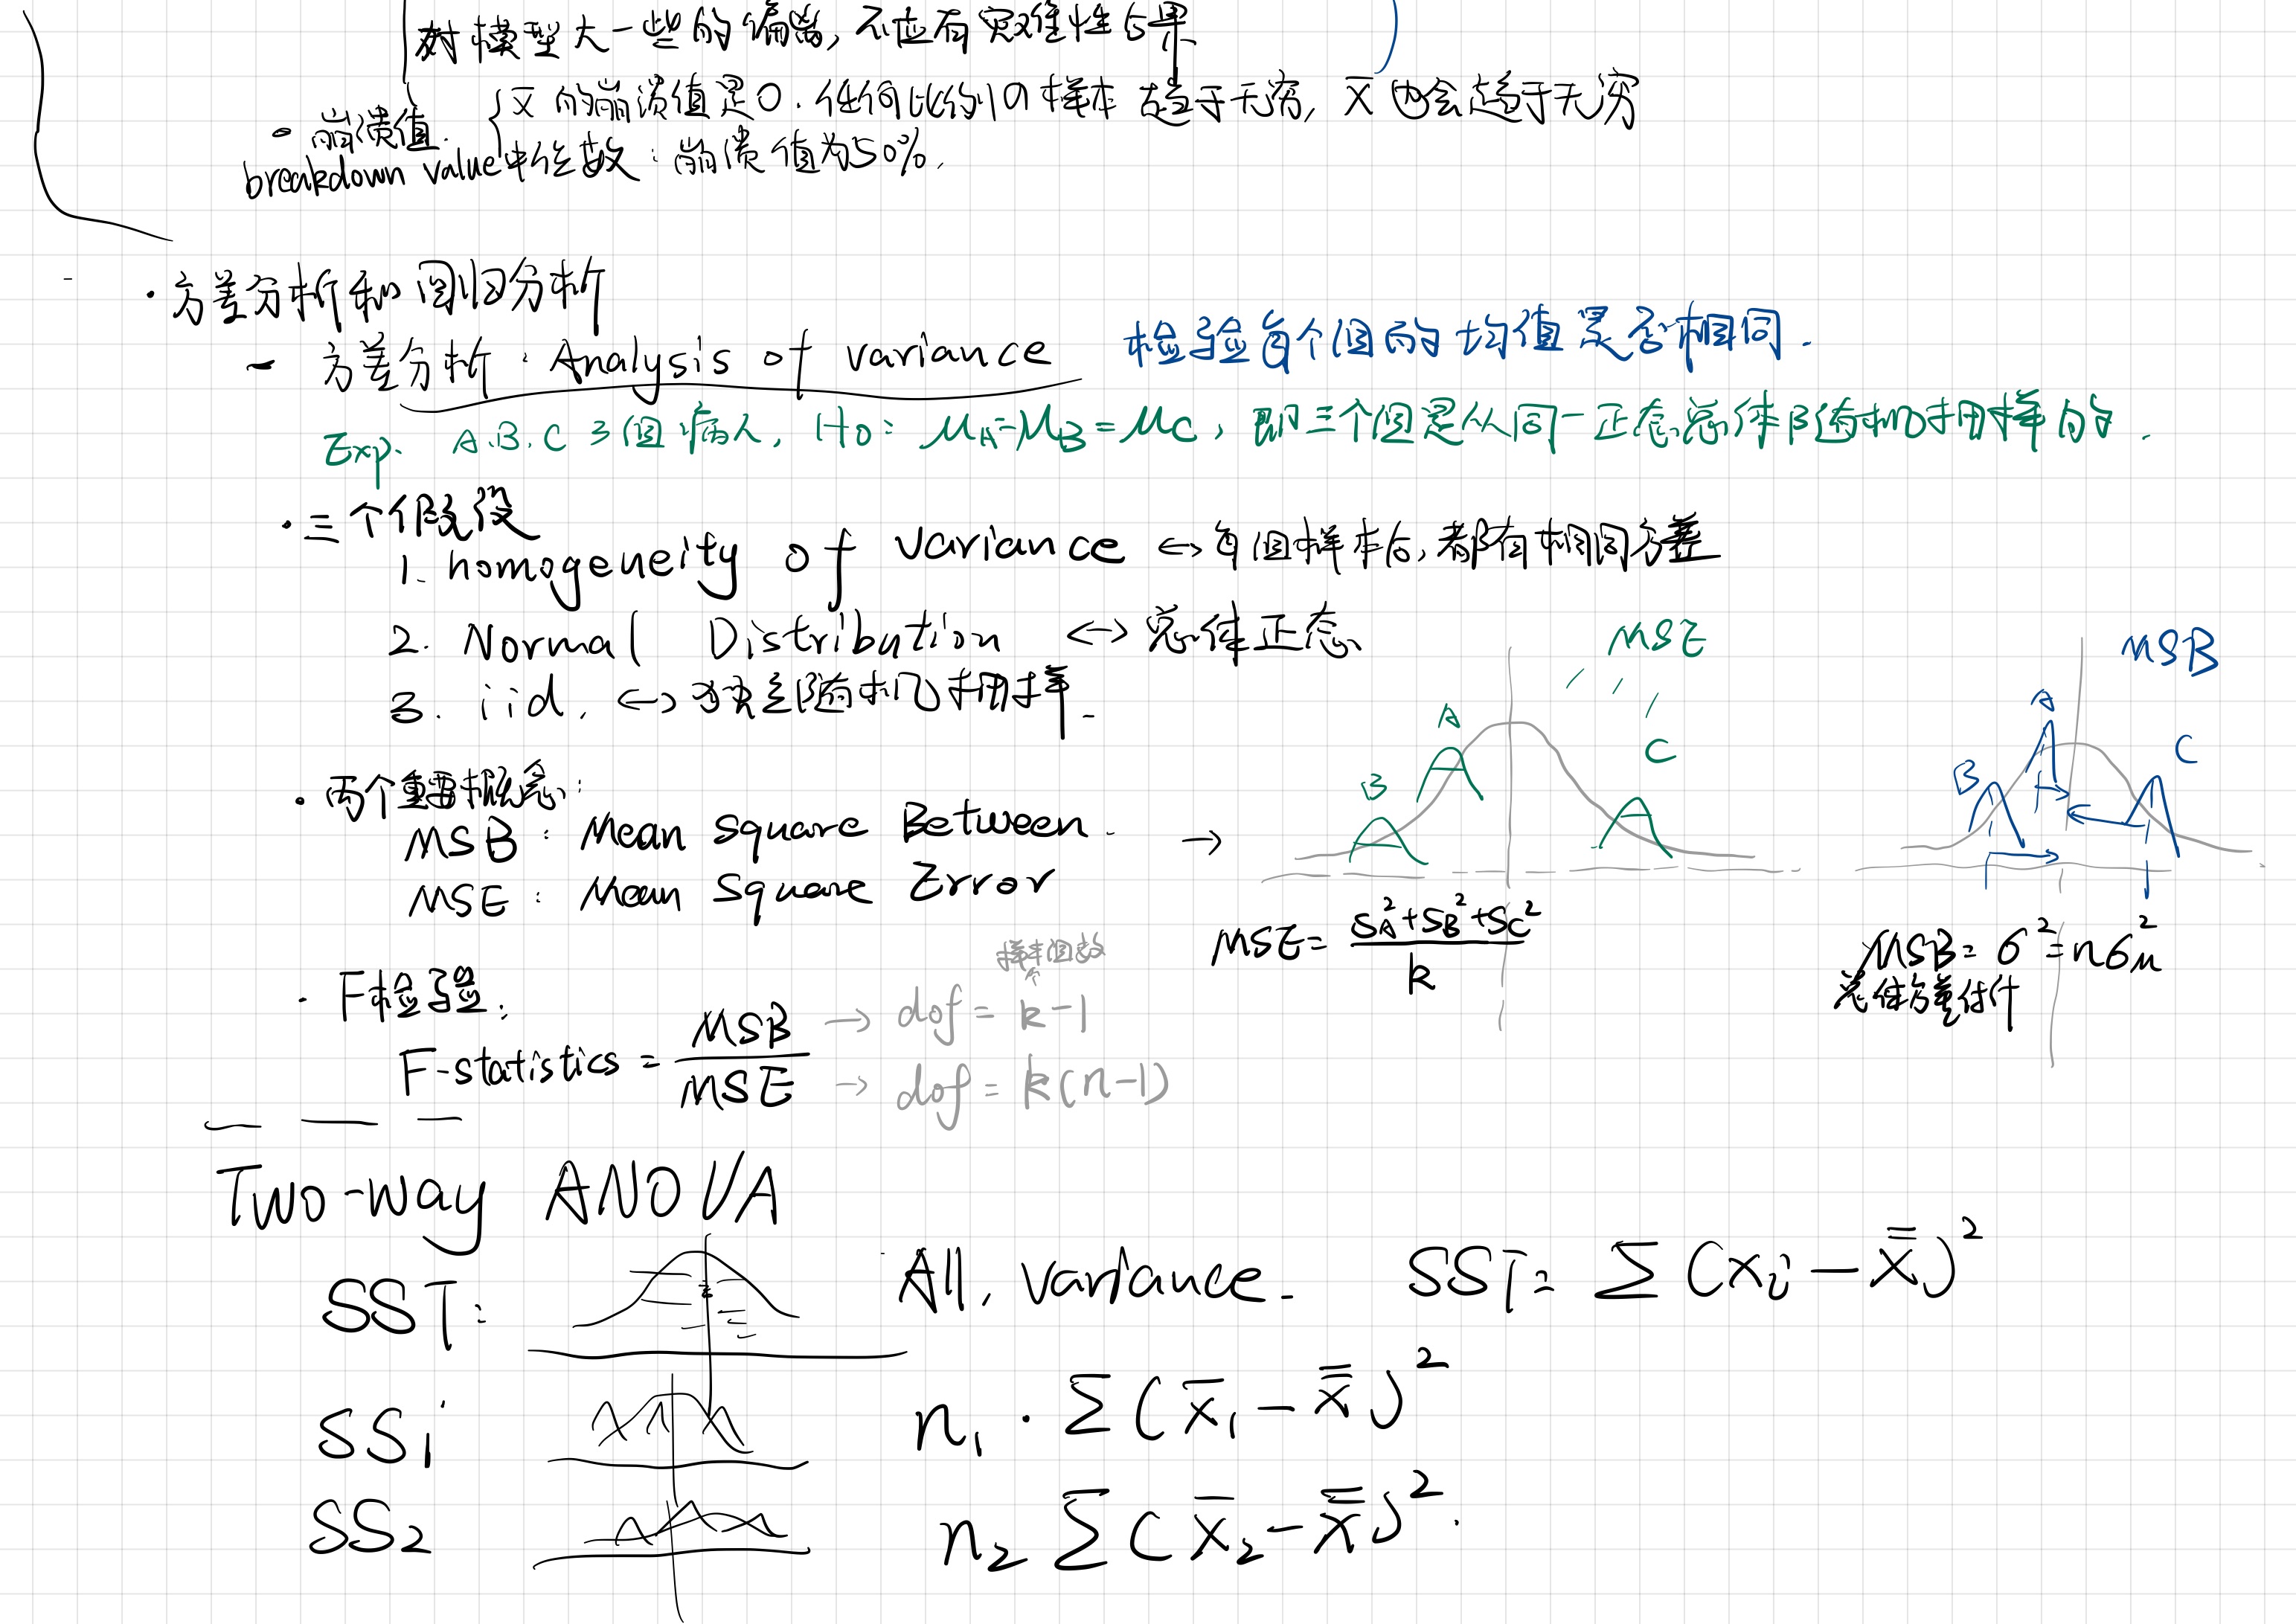 对模型大一些的偏离, 不应有灾难性后果
• 崩溃值. { x̄ 的崩溃值是0. 任何比例的样本趋于无穷, x̄ 也会趋于无穷
breakdown value 中位数: 崩溃值为50%.
· 方差分析和回归分析
- 方差分析: Analysis of variance 检验每个组的均值是否相同.
Exp. A.B.C 3组病人, H0: μA=μB=μC, 即三个组是从同一正态总体随机抽样的.
· 三个假设
1. homogeneity of variance ↔ 每组样本后, 都有相同方差
2. Normal Distribution ↔ 总体正态
3. iid. ↔ 独立随机抽样.
· 两个重要概念:
MSB: Mean square Between. →
MSE: Mean Square Error
MSE
A
B
C
MSE = (SA²+SB²+SC²)/k
MSB
A
B
C
MSB = σ² = nσμ²
总体方差估计
· F检验:
样本组数
F-statistics = MSB/MSE
→ dof = k-1
→ dof = k(n-1)
Two-way ANOVA
SST: All. variance. SST = Σ(xi - x̿)²
SS1 n₁ · Σ(x̄₁ - x̿)²
SS2 n₂ Σ(x̄₂ - x̿)².